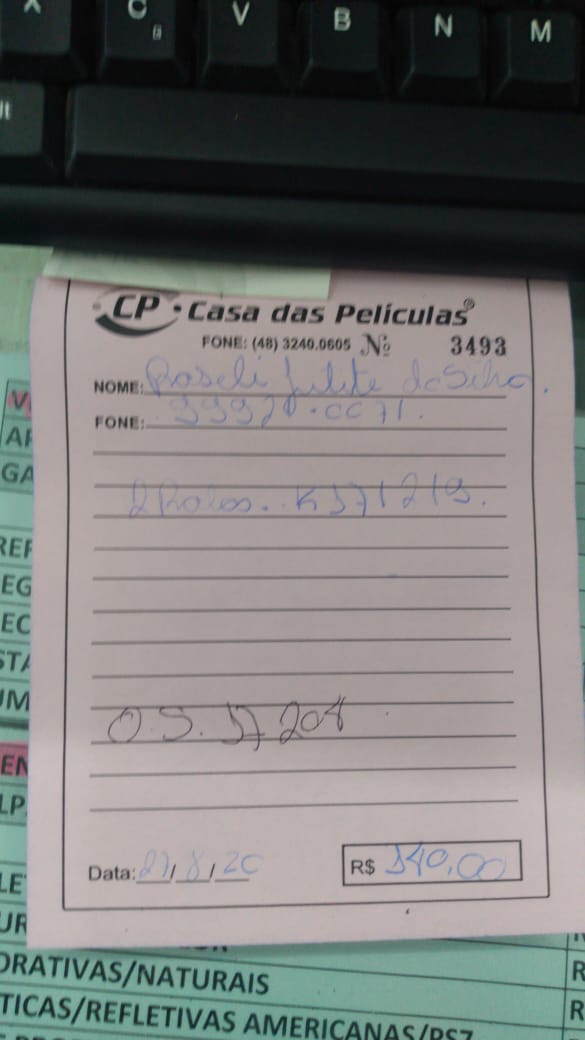 X C V B N M
CP • Casa das Películas®
FONE: (48) 3240.0605 Nº 3493
NOME: Roseli da Silva.
FONE: 99920.0071.
2 Rolos. K171219.
O.S. 17 208
Data: 27/8/20 R$ 140,00
V
AF
GA
REF
EG
EC
STA
UM
EN
LP
LE
UR
ORATIVAS/NATURAIS R
TICAS/REFLETIVAS AMERICANAS/PS7 R